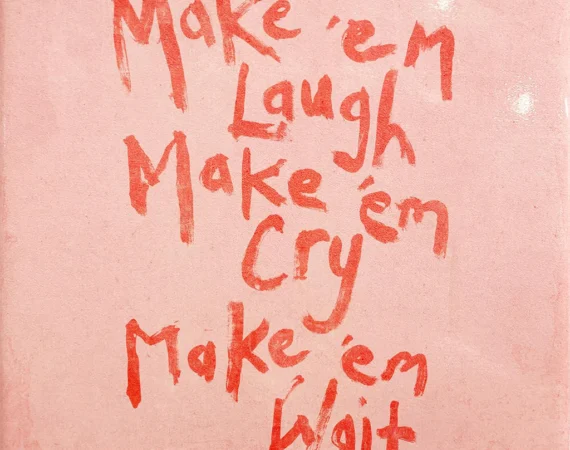 Make 'em
Laugh
Make 'em
Cry
Make 'em
Wait